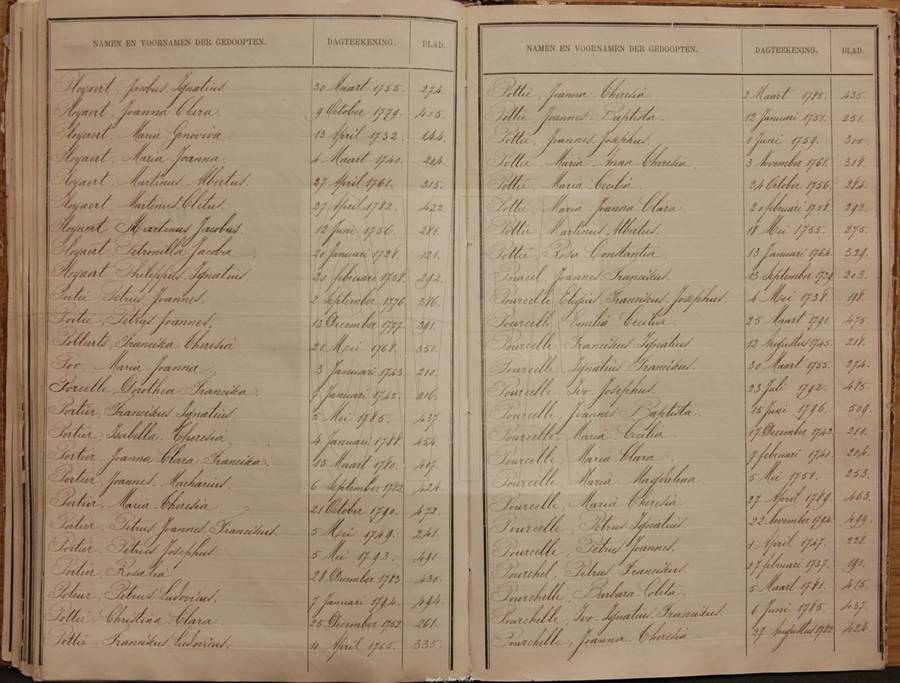 NAMEN EN VOORNAMEN DER GEDOOPTEN. DAGTEEKENING. BLAD.
Ployaert, Jacobus Ignatius. 30 Maart 1755. 274.
Ployaert, Joanna Clara. 9 October 1779. 405.
Ployaert, Maria Genoviva. 13 April 1732. 144.
Ployaert, Maria Joanna. 4 Maart 1740. 204.
Ployaert, Martinus Albertus. 27 April 1761. 315.
Ployaert, Martinus Cletus. 27 April 1782. 422.
Ployaert Martinus Jacobus. 12 Juni 1756. 281.
Ployaert Petronilla Jacoba 20 Januari 1728. 121.
Ployaert Philippus Ignatius 20 februari 1758. 292.
Portie Petrus Joannes. 2 September 1776. 386.
Portie, Petrus Joannes. 13 December 1777. 391.
Franciska Theresia 21 Mei 1768. 350.
Maria Joanna. 3 Januari 1743. 210.
Porcelle Dorothea Franciska. 7 Januari 1745. 216.
Portier, Franciskus Ignatius. 5 Mei 1785. 437.
Portier, Isabella Theresia. 4 Januari 1788. 454.
Portier, Joanna Clara Franciska. 15 Maart 1780. 407.
Portier, Joannes Macharius. 6 September 1782. 424.
Portier, Maria Theresia. 21 October 1790. 472.
Portier, Petrus Joannes Franciskus. 5 Mei 1749. 241.
Portier, Petrus Josephus 5 Mei 1793. 491.
Portier, Rosalia 28 December 1783. 430.
Poteur, Petrus Ludovicus. 7 Januari 1794. 494.
Pottie, Christina Clara. 25 December 1752. 261.
Pottie, Franciskus Ludovicus. 11 April 1765. 335.
NAMEN EN VOORNAMEN DER GEDOOPTEN. DAGTEEKENING. BLAD.
Pottie, Joanna Theresia 2 Maart 1785. 435.
Pottie, Joannes Baptista. 12 Januari 1751. 251.
Pottie, Joannes Josephus. 1 Juni 1759. 300.
Pottie, Maria Anna Theresia. 3 November 1761. 318.
Pottie, Maria Cecilia. 24 October 1756. 284.
Pottie, Maria Joanna Clara. 20 februari 1758. 292.
Pottie, Martinus Albertus. 18 Mei 1755. 275.
Pottie, Rosa Constantia. 13 Januari 1764. 329.
Pourcel, Joannes Franciskus. 23 September 1739. 203.
Pourcelle Elegius Franciskus Josephus. 4 Mei 1738. 198.
Pourcelle, Emilia Cecilia. 25 Maart 1791. 475.
Pourcelle Franciskus Ignatius 12 Augustus 1745. 218.
Pourcelle Ignatius Franciskus. 30 Maart 1755. 274.
Pourcelle Ivo Josephus. 23 Juli 1792. 485.
Pourcelle, Joannes Baptista. 15 Juni 1796. 509.
Pourcelle, Maria Cecilia 17 December 1742. 210.
Pourcelle, Maria Clara. 7 februari 1740. 204.
Pourcelle, Maria Magdalena. 5 Mei 1751. 253.
Pourcelle, Maria Theresia. 27 April 1789. 463.
Pourcelle, Petrus Ignatius. 22 November 1794. 499.
Pourcelle, Petrus Joannes. 1 April 1747. 228.
Pourchel, Petrus Franciskus. 27 februari 1737. 191.
Pourchelle, Barbara Coleta. 5 Maart 1781. 415.
Pourchelle, Ivo Ignatius Franciskus. 6 Juni 1785. 437.
Pourchelle, Joanna Theresia 27 Augustus 1782. 424.